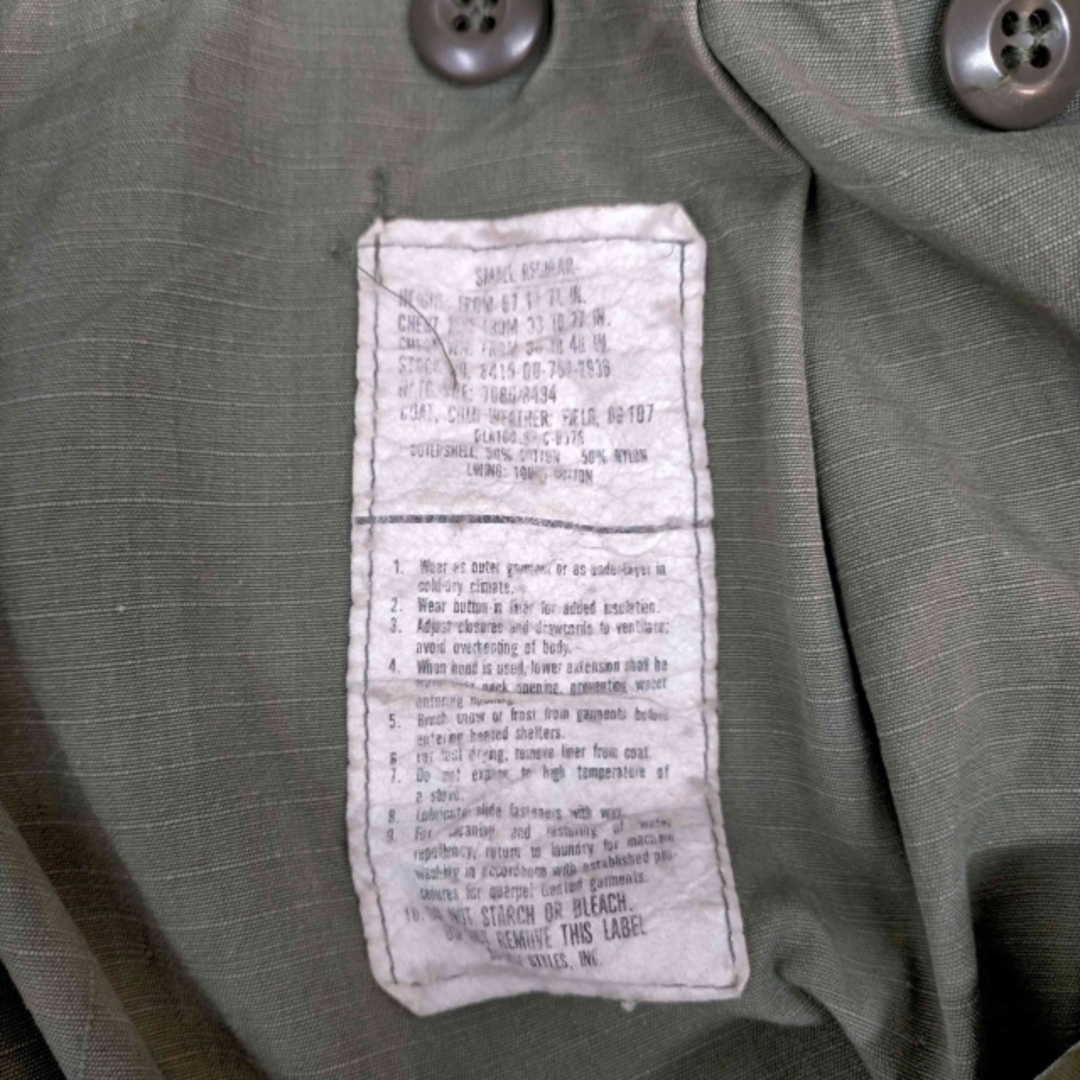 SMALL REGULAR
HEIGHT: FROM 67 71 IN.
CHEST FROM 33 TO 37 IN.
FROM 40 IN.
STOCK NO. 8415-00-
NATO SIZE: 7080/8494
COAT, COLD WEATHER: FIELD, OG 107
DLA100
OUTERSHELL: 50% COTTON 50% NYLON
LINING: 100% COTTON
1. Wear as outer garment or as under-layer in
cold-dry climate.
2. Wear button-in liner for added insulation.
3. Adjust closures and drawcords to ventilate;
avoid overheating of body.
4. When hood is used, lower extension shall be
neck opening, preventing water
entering
5. Brush snow or frost from garments before
entering heated shelters.
6 For fast drying, remove liner from coat.
7. Do not expose to high temperature of
a stove.
8. Lubricate slide fasteners with wax.
9. For cleaning and restoring of water
repellency, return to laundry for machine
washing in accordance with established pro-
cedures for quarpel treated garments.
10. DO NOT STARCH OR BLEACH.
DO NOT REMOVE THIS LABEL
STYLES, INC.